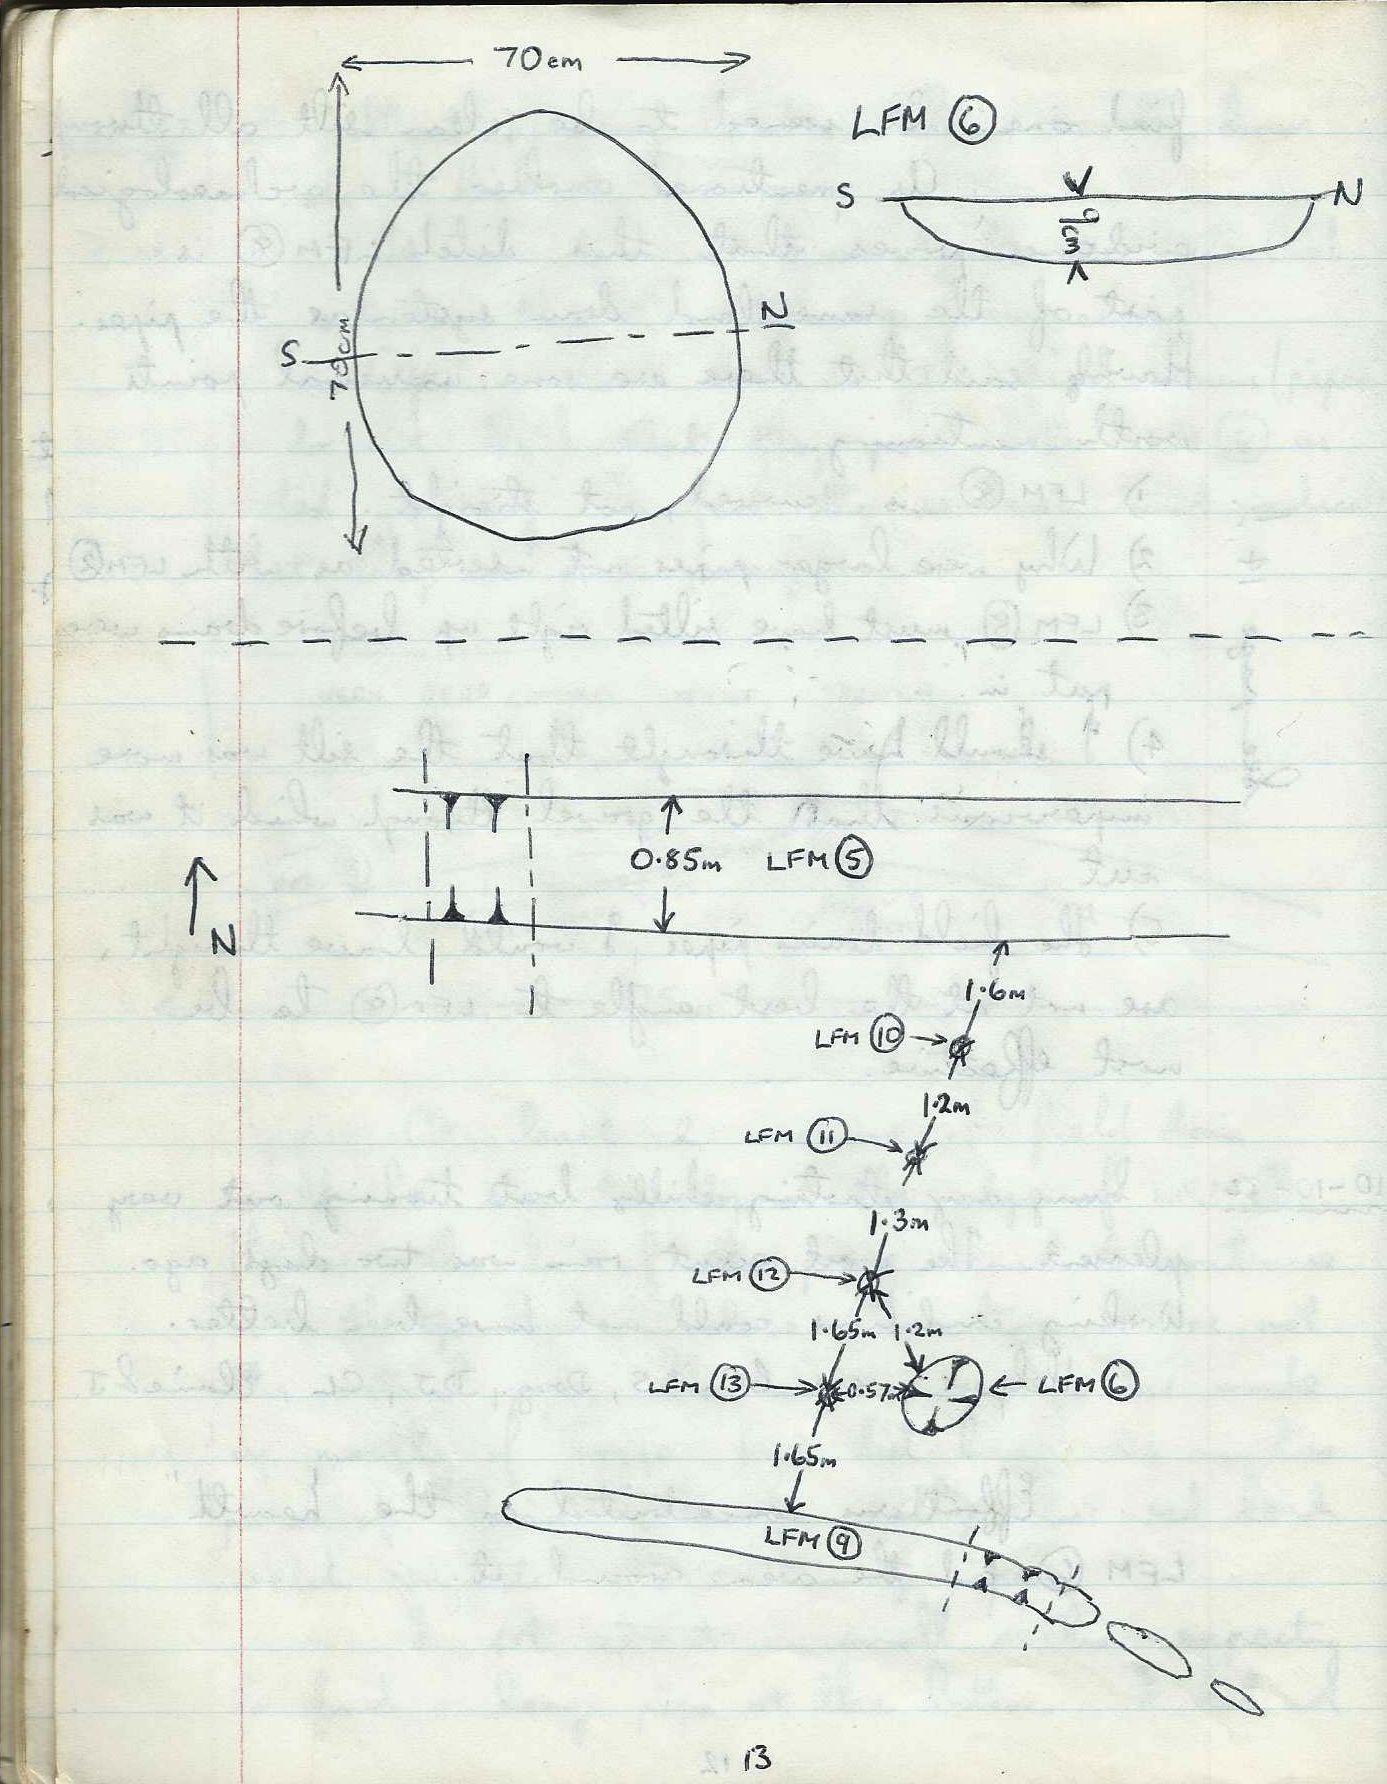 70cm
LFM ⑥
S N
9cm
N
S
70cm
0.85m LFM ⑤
N
1.6m
LFM ⑩
1.2m
LFM ⑪
1.3m
LFM ⑫
1.65m 1.2m
LFM ⑬ 0.57m LFM ⑥
1.65m
LFM ⑨
13